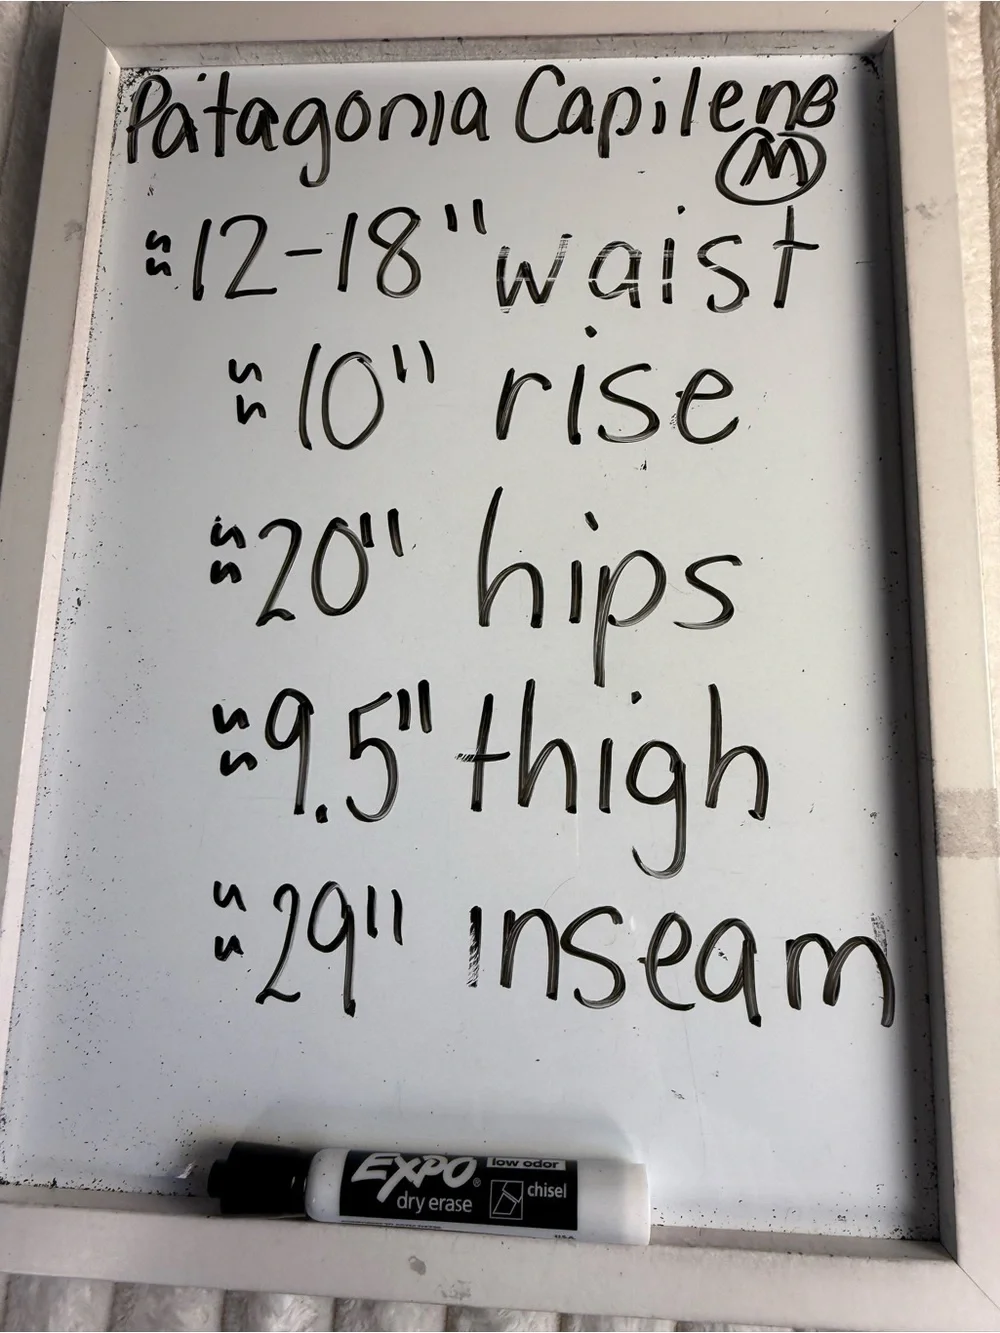 Patagonia Capilene
M
≈12-18" waist
≈10" rise
≈20" hips
≈9.5" thigh
≈29" inseam
EXPO® low odor
dry erase chisel
U.S.A.